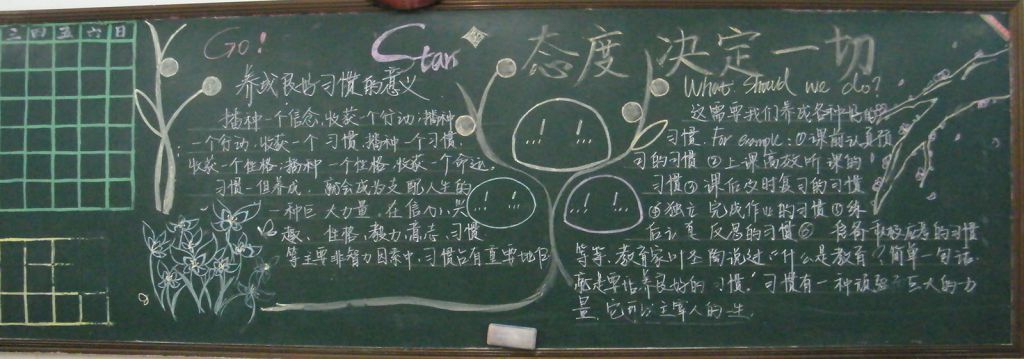 三四五六日
Go!
Star
态度 决定一切
养成良好习惯的意义
播种一个信念,收获一个行动;播种
一个行动,收获一个习惯;播种一个习惯,
收获一个性格;播种一个性格,收获一个命运。
习惯一但养成,就会成为支配人生的
一种巨大力量。在信力、兴
趣、性格、毅力、意志、习惯
等主要非智力因素中,习惯占有重要地位
What should we do?
这需要我们养成各种好的
习惯. For example: ①课前认真预
习的习惯 ②上课高效听课的
习惯③课后及时复习的习惯
④独立完成作业的习惯⑤练
后认真反思的习惯⑥
等等.教育家叶圣陶说过"什么是教育?简单一句话.
就是要培养良好的习惯."习惯有一种顽强巨大的力
量,它可以主宰人的一生.